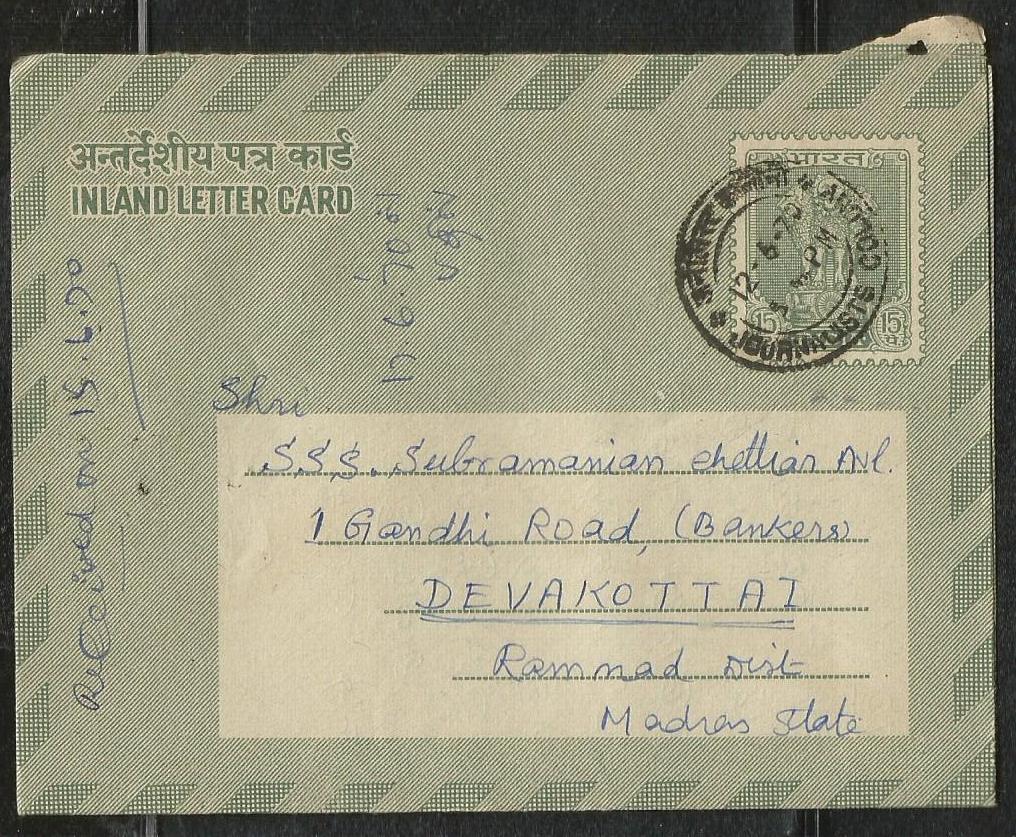 अन्तर्देशीय पत्र कार्ड
INLAND LETTER CARD
भारत
15
15
प.
JOURNALISTS COLONY
12-6-70
PM
Received on 15.6.70
17.6.70
Shri
S.S.S. Subramanian chettiar Avl.
1 Gandhi Road, (Bankers)
DEVAKOTTAI
Ramnad Dist
Madras State